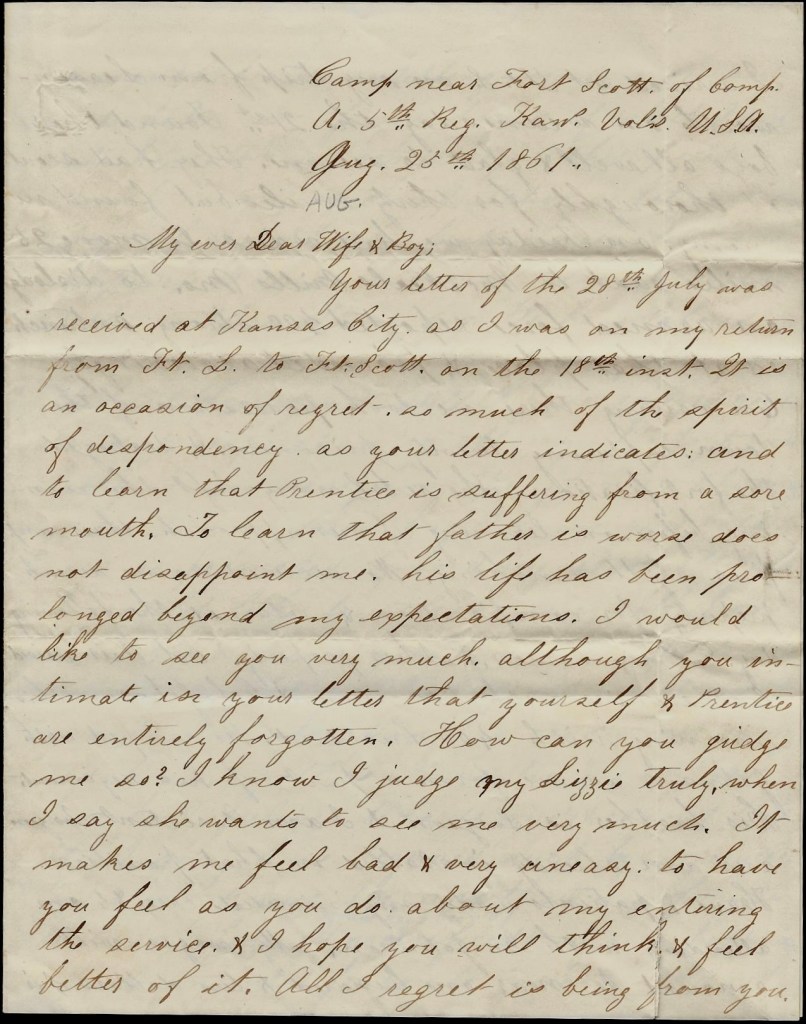 Camp near Fort Scott. of Comp.
A. 5th Reg. Kan. Vol's. U.S.A.
Aug. 25th 1861.
AUG.
My ever Dear Wife & Boy;
Your letter of the 28th July was
received at Kansas City. as I was on my return
from Ft. L. to Ft. Scott. on the 18th inst. It is
an occasion of regret. so much of the spirit
of despondency. as your letter indicates: and
to learn that Prentice is suffering from a sore
mouth. To learn that father is worse does
not disappoint me. his life has been pro=
longed beyond my expectations. I would
like to see you very much. although you in-
timate in your letter that yourself & Prentice
are entirely forgotten. How can you judge
me so? I know I judge my Lizzie truly, when
I say she wants to see me very much. It
makes me feel bad & very uneasy. to have
you feel as you do. about my entering
the service. & I hope you will think & feel
better of it. All I regret is being from you.